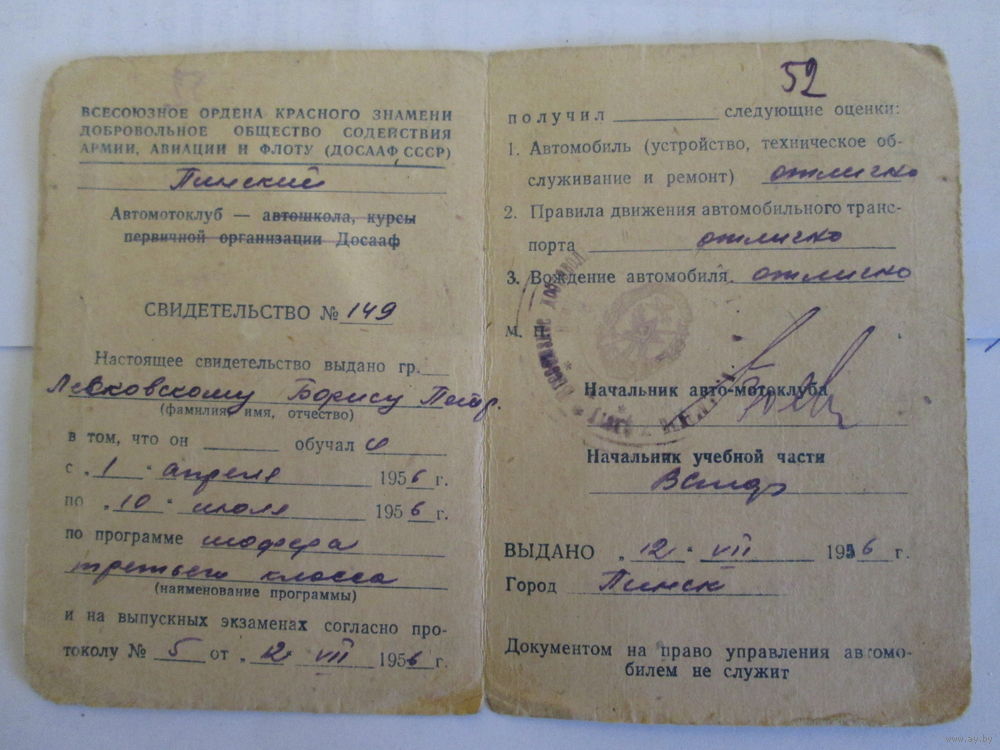 ВСЕСОЮЗНОЕ ОРДЕНА КРАСНОГО ЗНАМЕНИ
ДОБРОВОЛЬНОЕ ОБЩЕСТВО СОДЕЙСТВИЯ
АРМИИ, АВИАЦИИ И ФЛОТУ (ДОСААФ СССР)
Пинский
Автомотоклуб — автошкола, курсы
первичной организации Досааф
СВИДЕТЕЛЬСТВО № 149
Настоящее свидетельство выдано гр.
Левковскому Борису Петр.
(фамилия, имя, отчество)
в том, что он обучал ся
с „1" апреля 1956 г.
по „10" июля 1956 г.
по программе шофера
третьего класса
(наименование программы)
и на выпускных экзаменах согласно про-
токолу № 5 от „12" VII 1956 г.
52
получил следующие оценки:
1. Автомобиль (устройство, техническое об-
служивание и ремонт) отлично
2. Правила движения автомобильного транс-
порта отлично
3. Вождение автомобиля. отлично
М. П.
Начальник авто-мотоклуба
Начальник учебной части
ВЫДАНО „12" VII 1956 г.
Город Пинск
Документом на право управления автомо-
билем не служит
www.ay.by